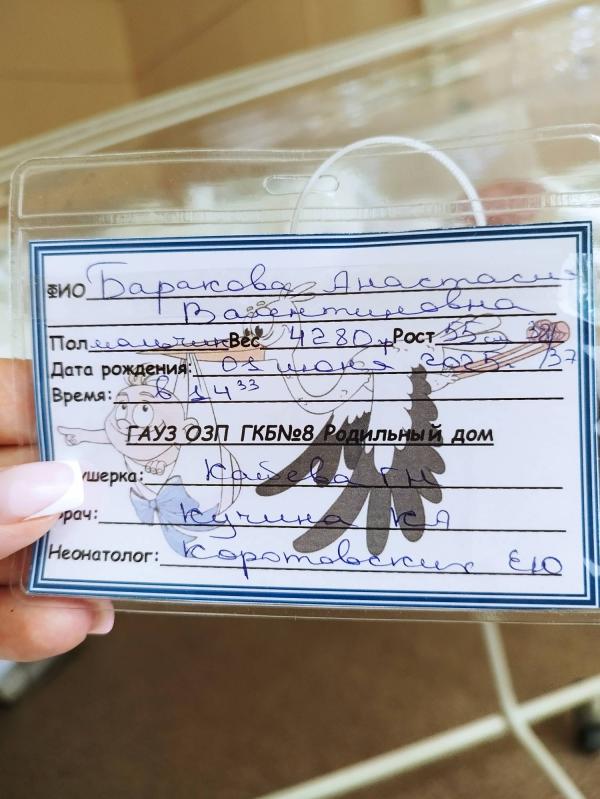 ФИО Баракова Анастасия
Валентиновна
Пол мальчик Вес 4280 гр Рост 55 см 38/37
Дата рождения: 01 июня 2025
Время: в 14 33
ГАУЗ ОЗП ГКБ№8 Родильный дом
ушерка: Кабева ГН
рач: Кучина КА
Неонатолог: Коротовских ЕЮ